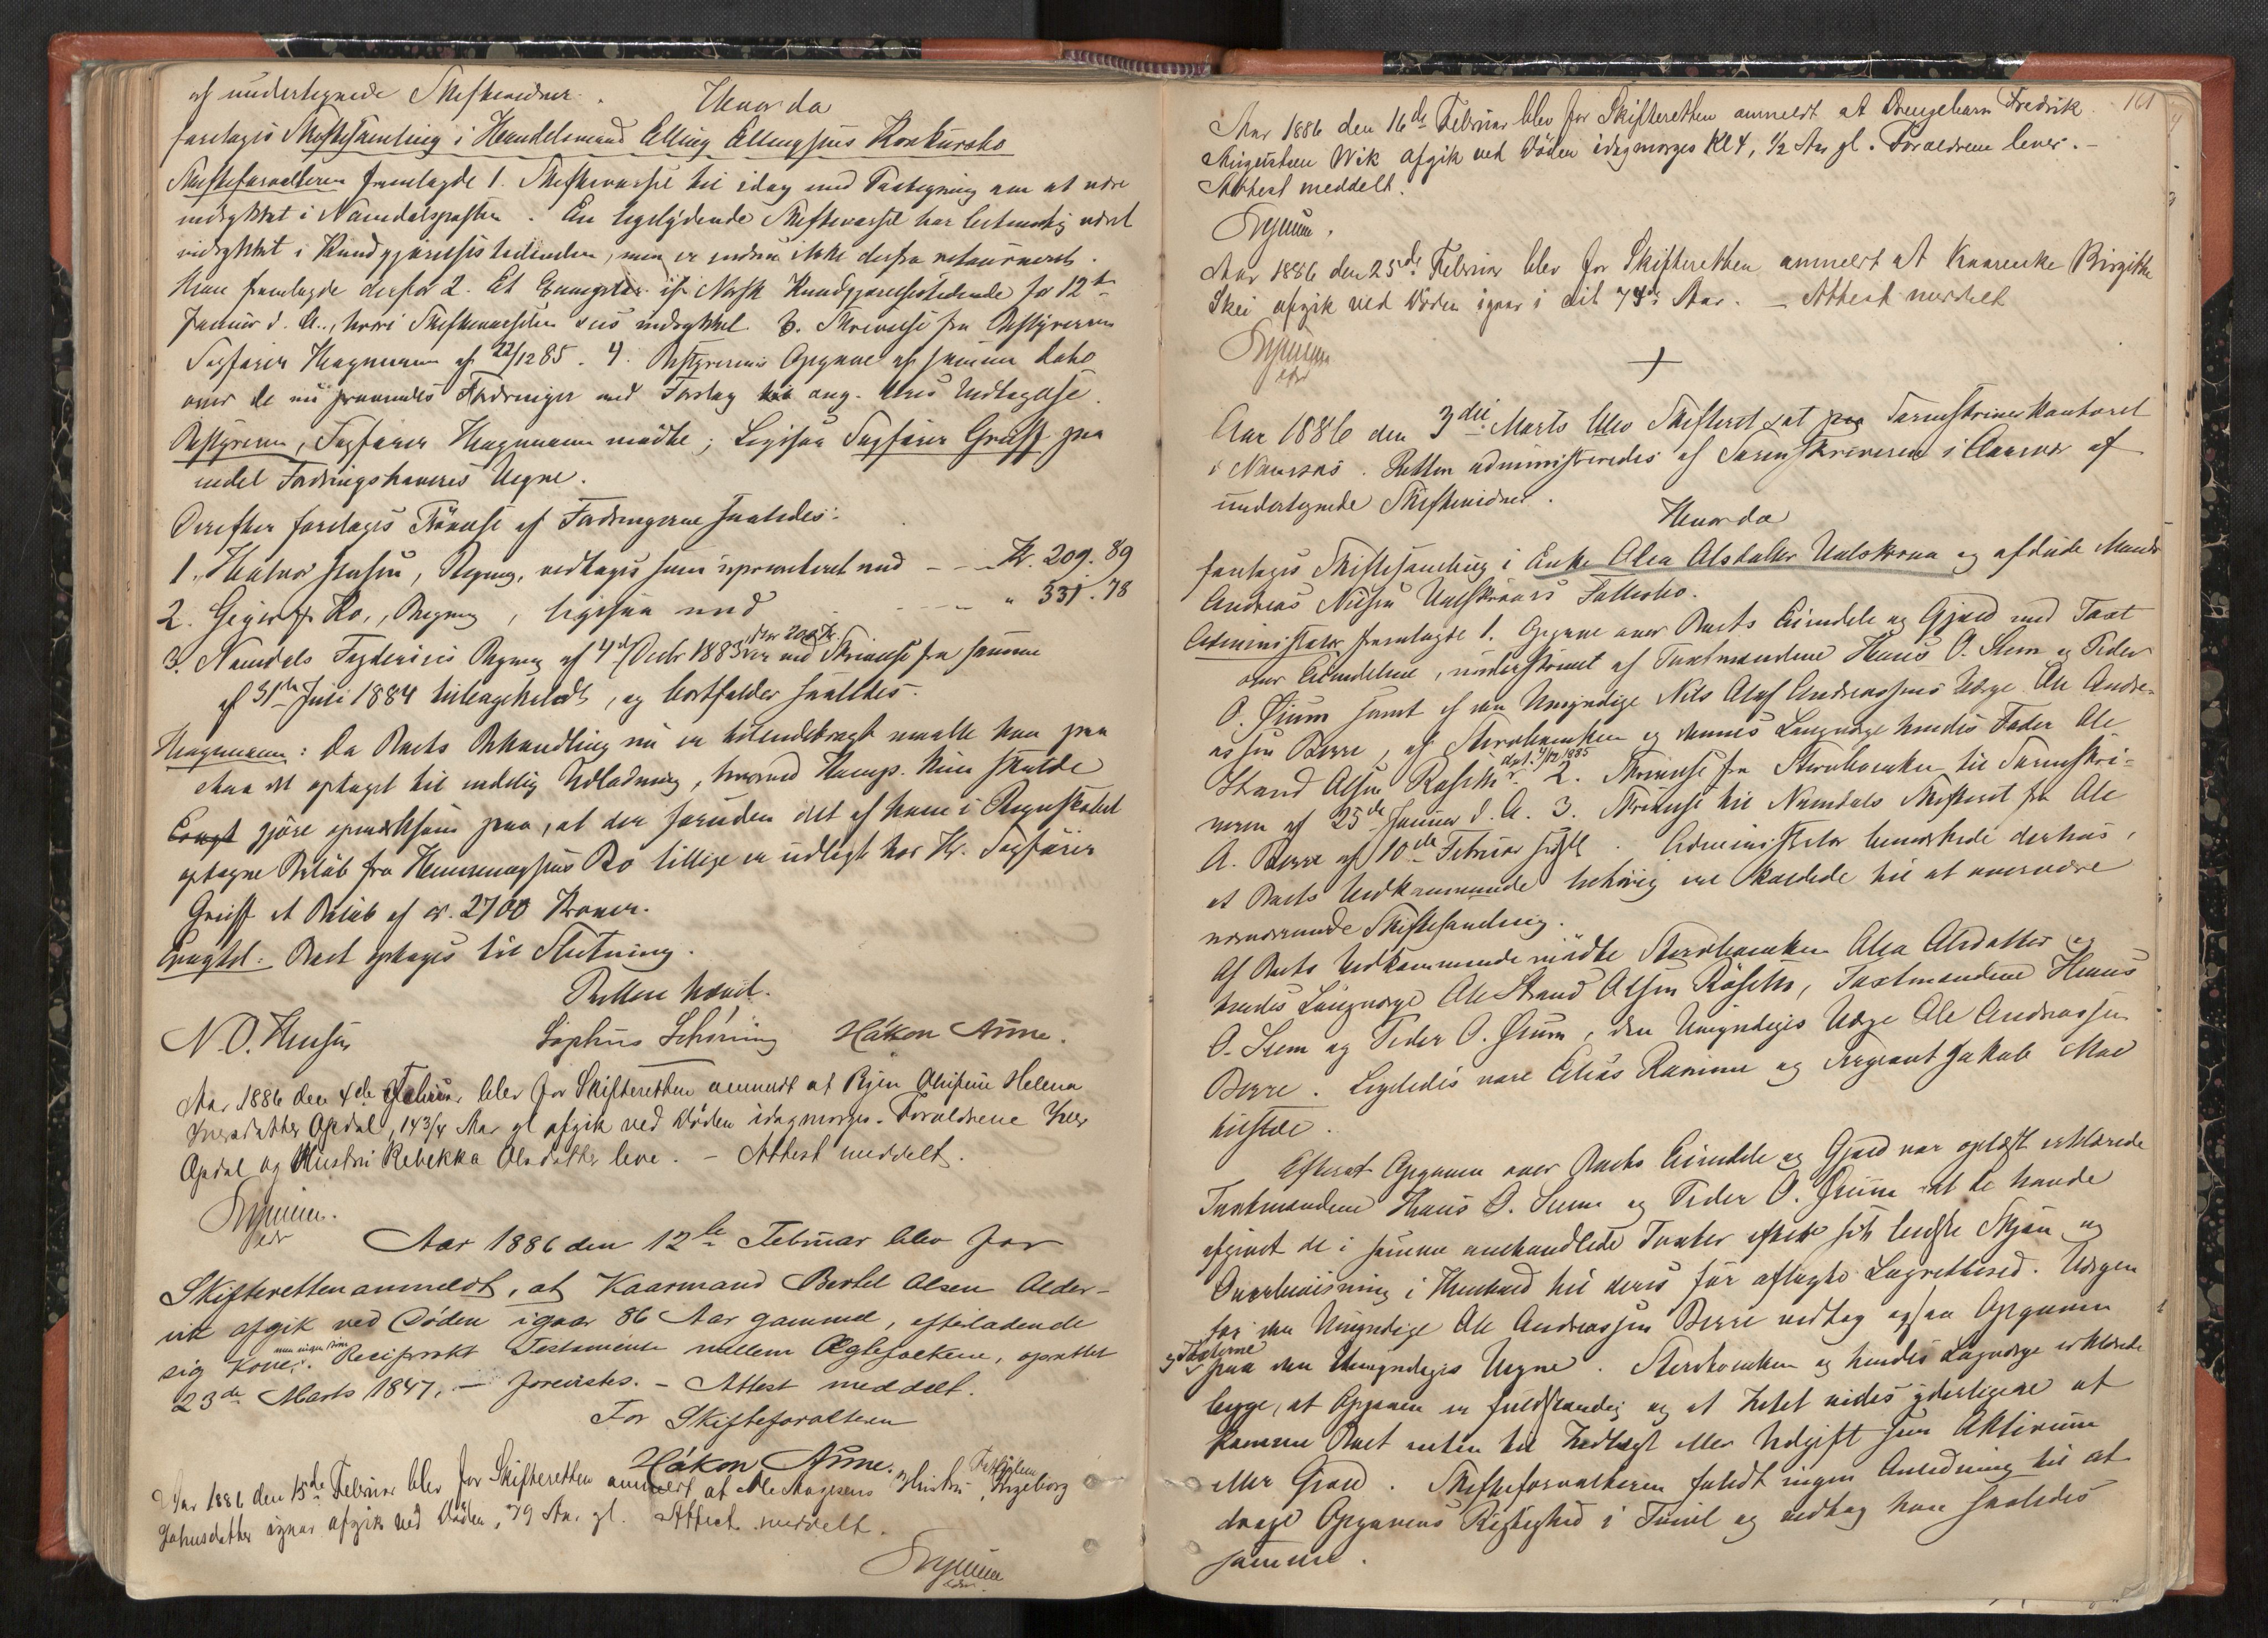 af undertegnede Skiftevidner.
Hvorda
foretoges Skiftesamling i Handelsmand Elling Ellingsens Konkursbo
Skifteforvalteren fremlagde 1. Skiftevarsel til idag med Paategning om at være
indrykket i Namdalsposten. En ligelydende Skiftevarsel har betimelig været
indrykket i Kundgjørelsestidenden, men er endnu ikke derfra retourneret.
Han fremlagde derfor 2. Et Exemplar af Norsk Kundgjørelsestidende for 12te
Januar d. A., hvori Skiftevarselen sees indrykket. 3. Skrivelse fra Bestyreren
Sagfører Hagemann af 22/12 85. 4. Bestyrerens Opgave af samme Dato
over de nu prøvendes Fordringer med Forslag ang. deres Vedtagelse.
Bestyreren, Sagfører Hagemann mødte; Ligesaa Sagfører Grüff paa
endel Fordringshaveres Vegne.
Derefter foretoges Prøvelse af Fordringerne saaledes:
1. Halvor Jensen, Regning, vedtages som uprioriteret med – – Kr. 209.89
2. Geiger & Ko., Regning, ligesaa med – – " 331.78
3. Namdals Fogderies Regning af 4de Decbr 1883 stor 200 Kr. er ved Skrivelse fra samme
af 31te Juli 1884 tilbagekaldt, og bortfalder saaledes.
Hagemann: Da Boets Behandling nu er tilendebragt maatte han paa-
staa det optaget til endelig Udlodning, hvorved Komp. kun skulde
gjøre opmærksom paa, at der foruden det af ham i Regnskabet
optagne Beløb fra Henningsens Bo tillige er udlagt hos Hr. Sagfører
Grüff et Beløb af cr. 2700 Kroner.
Eragtet: Boet optages til Slutning.
Retten hævet.
N. O. Hansen Sophus Schøning Håkon Aune.
Aar 1886 den 4de Februar blev for Skifteretten anmeldt at Pigen Olufine Helena
Iversdatter Opdal, 14 3/4 Aar gl afgik ved Døden idagmorges. Forældrene Iver
Opdal og Hustru Rebekka Olsdatter leve. – Attest meddelt.
Aar 1886 den 12te Februar blev for
Skifteretten anmeldt, at Kaarmand Bertel Olsen Alder-
vik afgik ved Døden igaar 86 Aar gammel, efterladende
sig Kone men ingen Børn. Reciprokt Testamente mellem Ægtefolkene, oprettet
23de Marts 1847, – forevistes. – Attest meddelt.
For Skifteforvalteren
Håkon Aune.
Aar 1886 den 15de Februar blev for Skifteretten anmeldt at Ole Mogensens Hustru, Ingeborg
Johnsdatter igaar afgik ved Døden, 79 Aar gl. Attest meddelt.
161
Aar 1886 den 16de Februar blev for Skifteretten anmeldt at Drengebarn Fredrik
Augustsen Wik afgik ved Døden idagmorges Kl 4, 1/2 Aar gl. Forældrene lever. –
Attest meddelt.
Aar 1886 den 25de Februar blev for Skifteretten anmeldt at Kaarenke Birgitte
Skei afgik ved Døden igaar i sit 73de Aar. – Attest meddelt
Aar 1886 den 3die Marts blev Skifteret sat paa Sorenskriverkontoret
i Namsos. Retten administreredes af Sorenskriveren i Nærvær af
undertegnede Skiftevidner.
Hvorda
foretoges Skiftesamling i Enke Olea Olsdatter Valskraa og afdøde Mands
Andreas Nilsen Valskraaes Fællesbo.
Administrator fremlagde 1. Opgave over Boets Eiendele og Gjæld med Taxt
over Eiendelene, underskrevet af Taxtmændene Hans O. Seem og Peder
O. Øium samt af den Umyndige Nils Olaf Andreassens Værge Ole Andre-
assen Berre, af Sterboenken og dennes Laugværge hendes Fader Ole
Strand Olsen Røseth dat. 4/12 1885. 2. Skrivelse fra Sterboenken til Sorenskri-
veren af 25de Januar d. A. 3. Skrivelse til Namdals Skifteret fra Ole
A. Berre af 10de Februar sidstl. Administrator bemærkede derhos,
at Boets Vedkommende behørig ere kaldede til at overvære
nærværende Skiftesamling.
Af Boets Vedkommende mødte Sterboenken Olea Olsdatter og
hendes Laugværge Ole Strand Olsen Røseth, Taxtmændene Hans
O. Seem og Peder O. Øium, den Umyndiges Værge Ole Andreassen
Berre. Ligeledes vare Elias Ravine og Sergeant Jakob Moe
tilstede.
Efterat Opgaven over Boets Eiendele og Gjæld var oplæst erklærede
Taxtmændene Hans O. Seem og Peder O. Øium at de havde
afgivet de i samme omhandlede Taxter efter sit bedste Skjøn og
Overbevisning i Henhold til deres før aflagte Lagretteed. Værgen
for den Umyndige Ole Andreassen Berre vedtog ogsaa Opgaven
og Taxterne paa den Umyndiges Vegne. Sterboenken og hendes Laugværge erklærede
begge, at Opgaven er fuldstændig og at Intet vides yderligere at
komme Boet enten til Indtægt eller Udgift som Aktivum
eller Gjæld. Skifteforvalteren fandt ingen Anledning til at
drage Opgavens Rigtighed i Tvivl og vedtog han saaledes
samme.